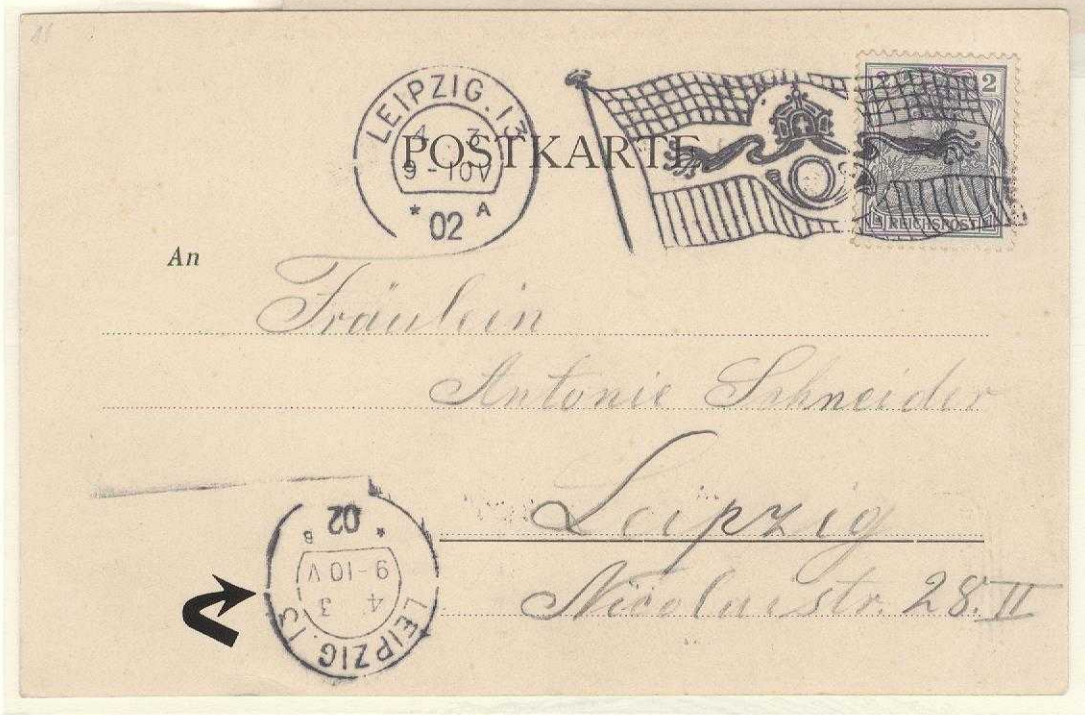 LEIPZIG. 13
4 3
9-10V
* 02 A
POSTKARTE
2
REICHSPOST
An
Fräulein
Antonie Schneider
Leipzig
Nicolaistr. 28. II
LEIPZIG. 13
4 3
9-10 V
* 02 B